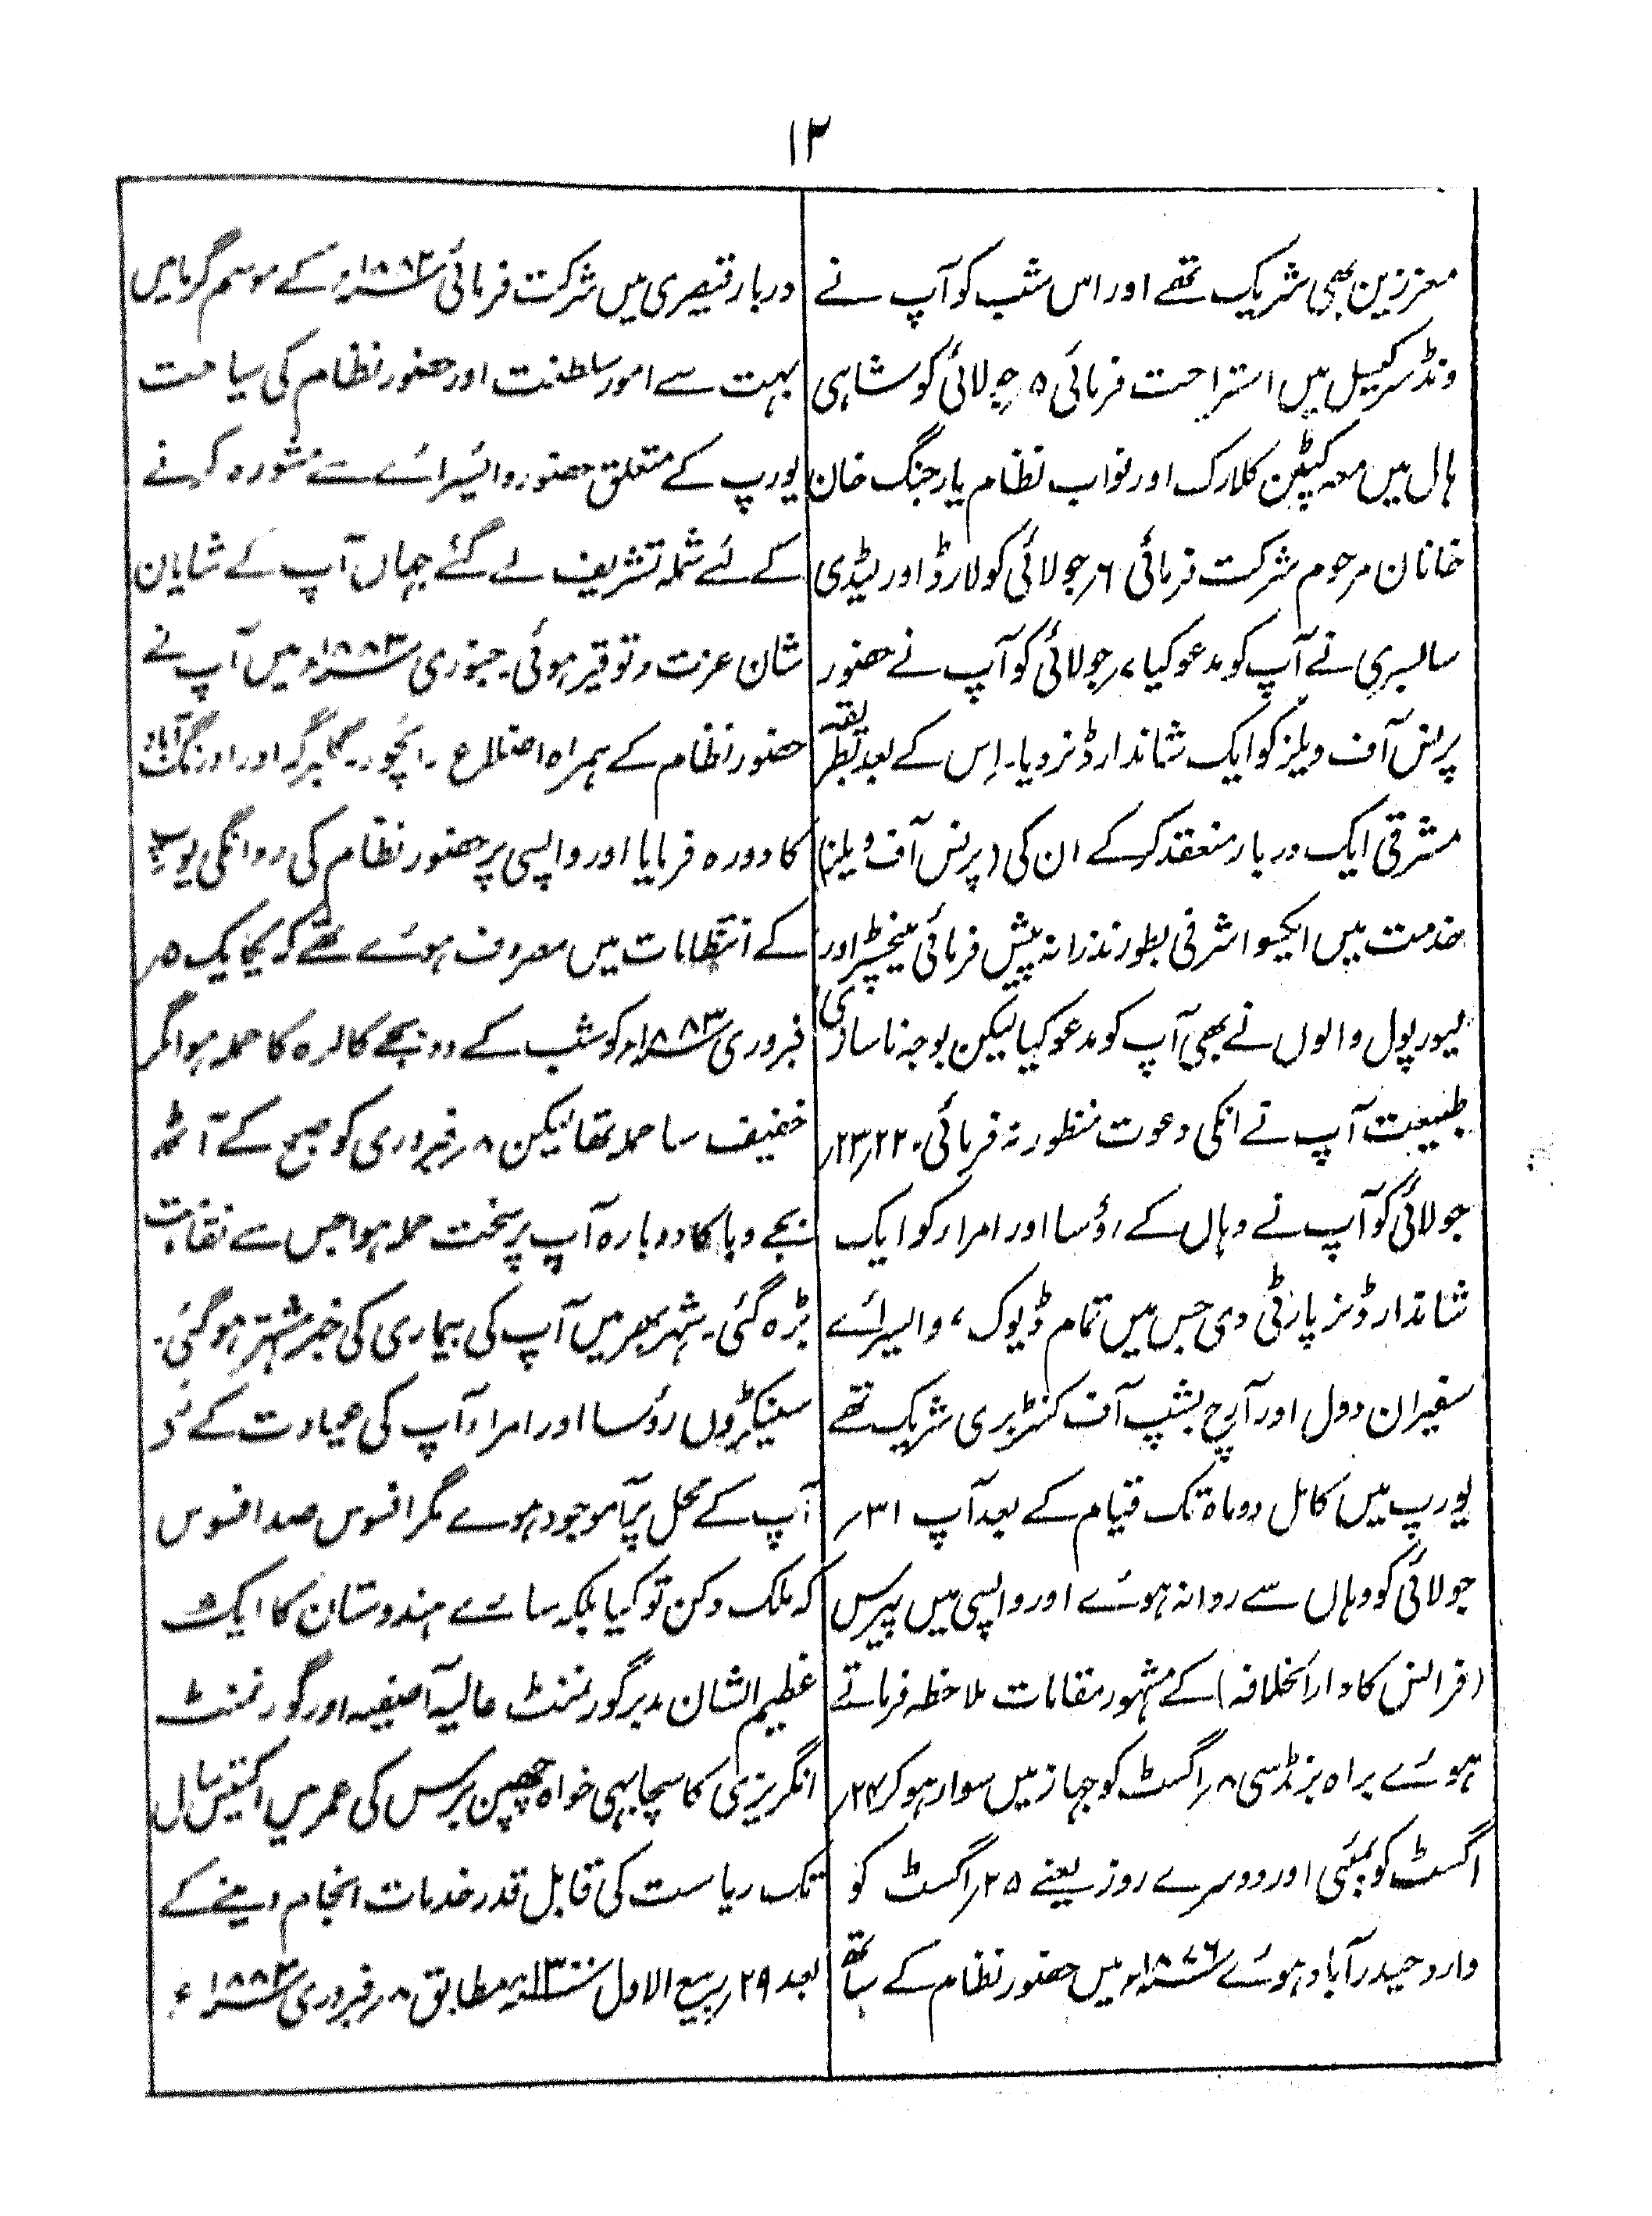 ۱۲
معززین بھی شریک تھے اور اس شب کو آپ نے
ونڈسر کیسل میں استراحت فرمائی ۵؍ جولائی کو شاہی
ہال میں معہ کپٹن کلارک اور نواب نظام یار جنگ خان
خانان مرحوم شرکت فرمائی ۶؍ جولائی کو لارڈ اور لیڈی
سالسبری نے آپ کو مدعو کیا ۷؍ جولائی کو آپ نے حضور
پرنس آف ویلز کو ایک شاندار ڈنر دیا۔ اِس کے بعد بطریقہ
مشرقی ایک دربار منعقد کر کے ان کی (پرنس آف ویلز)
خدمت میں ایکسو اشرفی بطور نذرانہ پیش فرمائی مینچسٹر اور
لیورپول والوں نے بھی آپ کو مدعو کیا لیکن بوجہ ناسازی
طبیعت آپ نے انکی دعوت منظور نہ فرمائی۔ ۲۲؍۲۳؍
جولائی کو آپ نے وہاں کے رؤسا اور امراء کو ایک
شاندار ڈنر پارٹی دی جس میں تمام ڈیوک، وایسرائے
سفیران دول اور آرچ بشپ آف کنٹربری شریک تھے
یورپ میں کامل دو ماہ تک قیام کے بعد آپ ۳۱؍
جولائی کو وہاں سے روانہ ہوئے اور واپسی میں پیرس
(فرانس کا دارالخلافہ) کے مشہور مقامات ملاحظہ فرماتے
ہوئے براہ برنڈسی ۸؍ اگسٹ کو جہاز میں سوار ہو کر ۲۴؍
اگسٹ کو بمبئی اور دوسرے روز یعنے ۲۵؍ اگسٹ کو
وارد حیدرآباد ہوئے ۱۸۷۶ء میں حضور نظام کے ساتھ
دربار قیصری میں شرکت فرمائی ۱۸۸۲ء کے موسم گرما میں
بہت سے امور سلطنت اور حضور نظام کی سیاحت
یورپ کے متعلق حضور وائسرائے سے مشورہ کرنے
کے لئے شملہ تشریف لے گئے جہاں آپ کے شایان
شان عزت و توقیر ہوئی۔ جنوری ۱۸۸۳ء میں آپ نے
حضور نظام کے ہمراہ اضلاع۔ رائچور۔ گلبرگہ اور اورنگ آباد
کا دورہ فرمایا اور واپسی پر حضور نظام کی روانگی یورپ
کے انتظامات میں مصروف ہوئے تھے کہ یکایک ۵؍
فبروری ۱۸۸۳ء کو شب کے دو بجے کالرہ کا حملہ ہوا گر
خفیف سا حملہ تھا لیکن ۸؍ فبروری کو صبح کے آٹھ
بجے وبا کا دوبارہ آپ پر سخت حملہ ہوا جس سے نقاہت
بڑہ گئی۔ شہر بھر میں آپ کی بیماری کی خبر مشتہر ہو گئی۔
سینکڑوں رؤسا اور امراء آپ کی عیادت کے لئے
آپ کے محل پر آموجود ہوے مگر افسوس صد افسوس
کہ ملک دکن تو کیا بلکہ سارے ہندوستان کا ایک
عظیم الشان مدبر گورنمنٹ عالیہ آصفیہ اور گورنمنٹ
انگریزی کا سچا بہی خواہ چھپن برس کی عمر میں اکتیس سال
تک ریاست کی قابل قدر خدمات انجام دینے کے
بعد ۲۹؍ ربیع الاول ۱۳۰۰ھ مطابق ۸؍ فبروری ۱۸۸۳ء